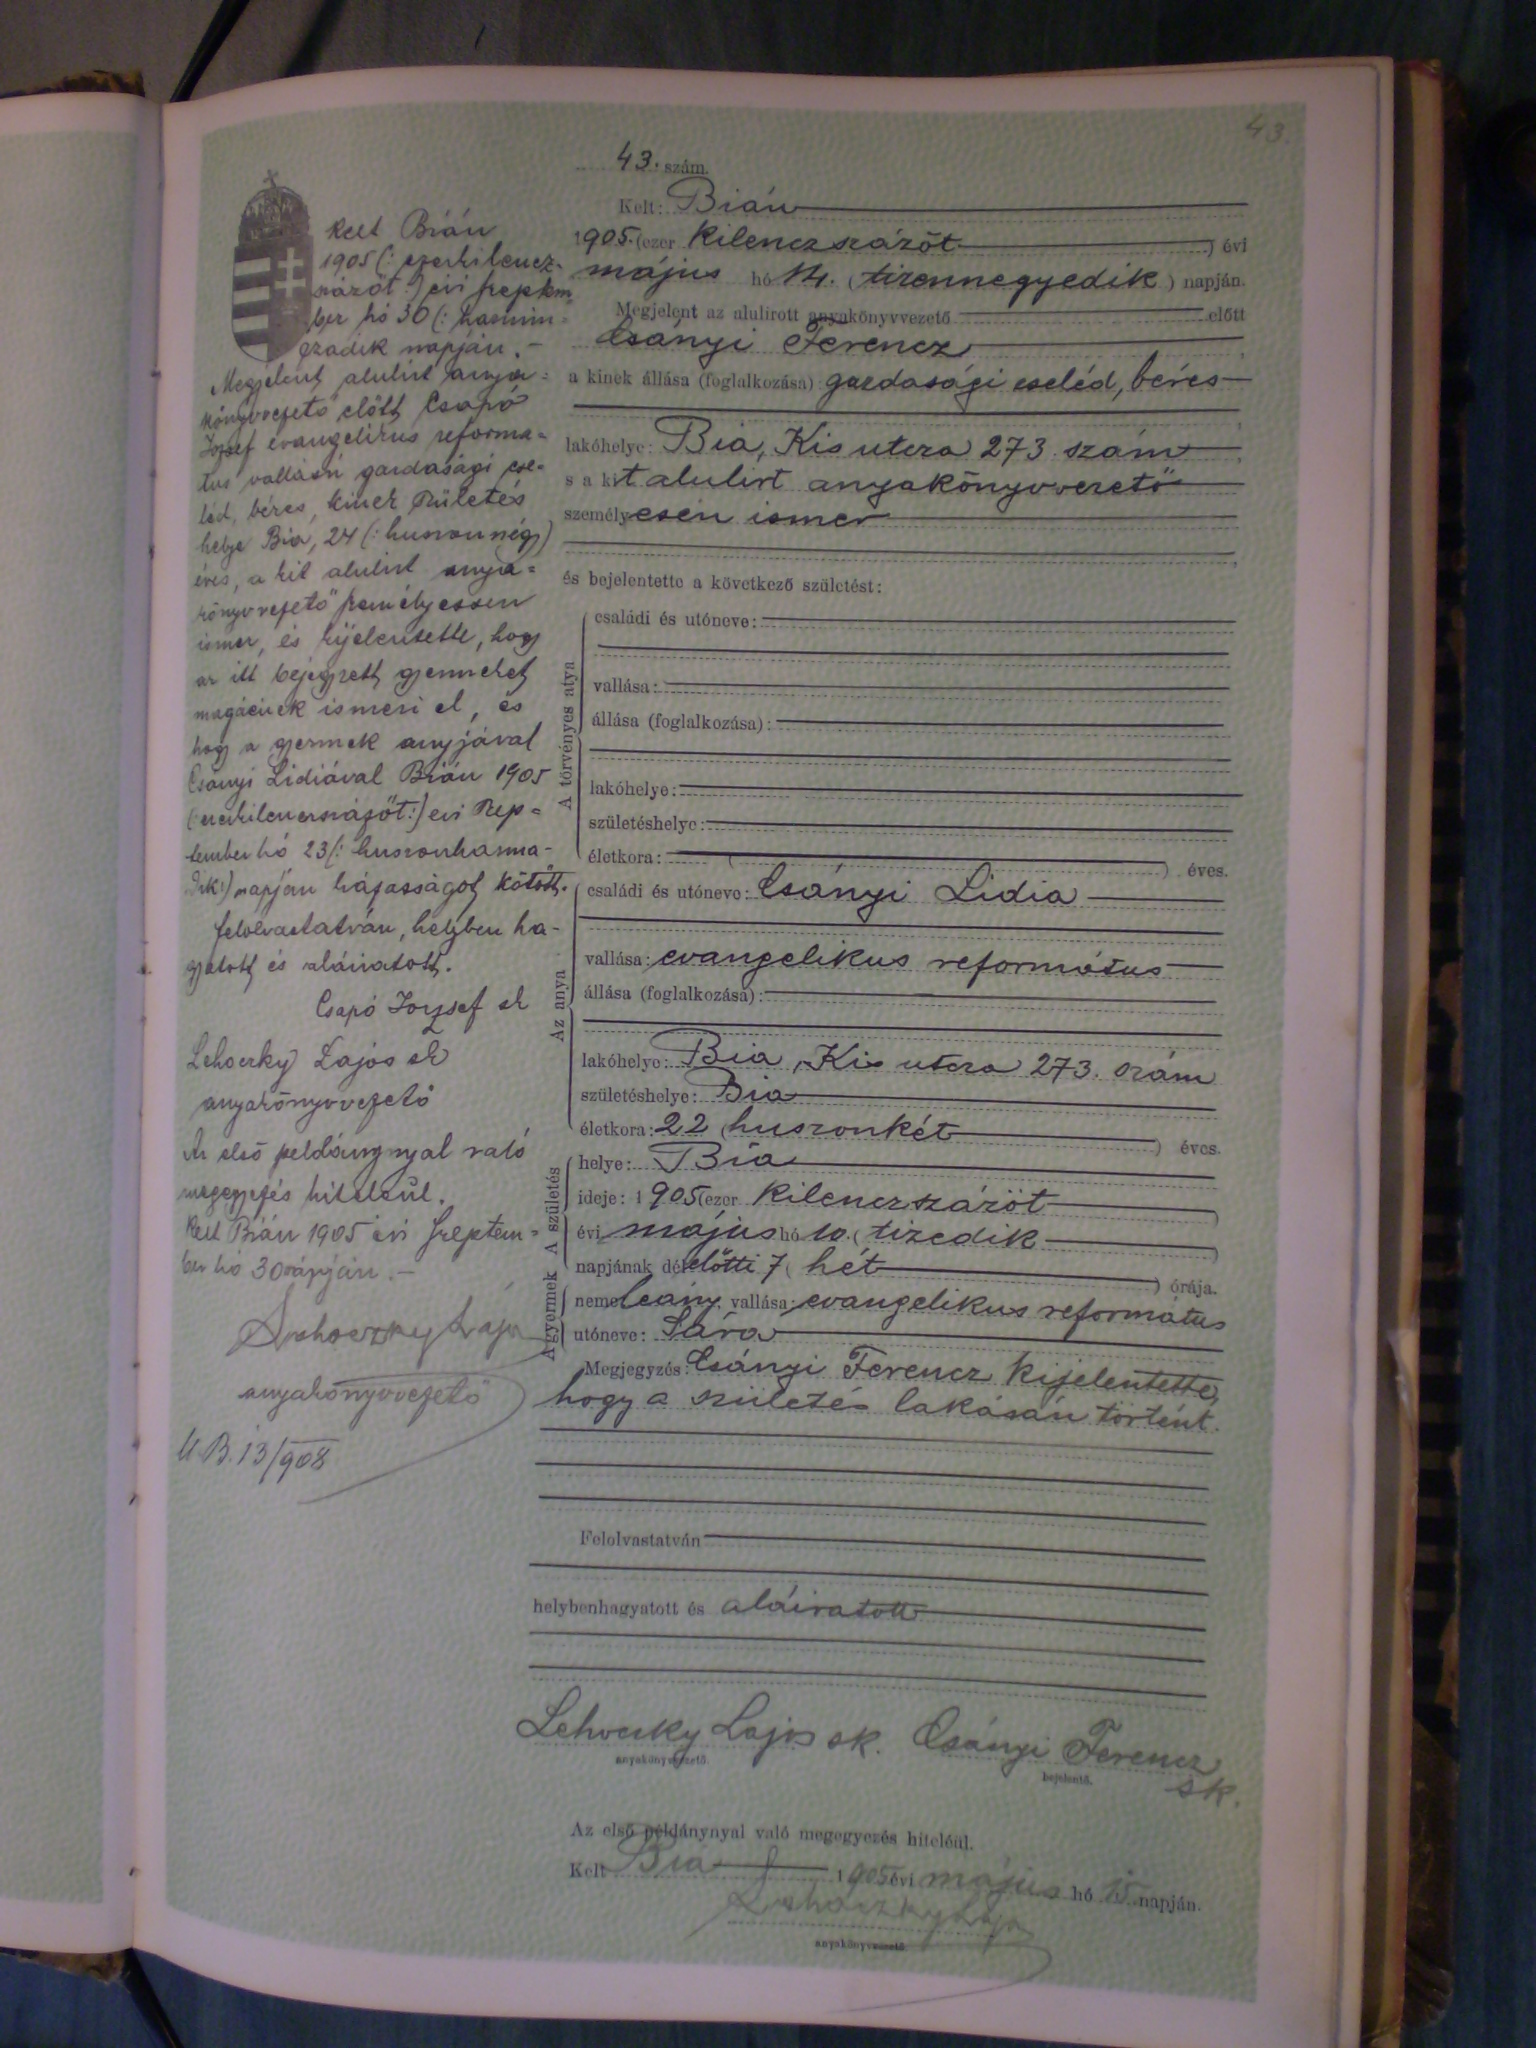 43
43. szám.
Kelt: Bián
1905. (ezer kilenczszázöt) évi
május hó 14. (tizennegyedik) napján.
Megjelent az alulirott anyakönyvvezető előtt
Csányi Ferencz
a kinek állása (foglalkozása): gazdasági cseléd, béres
lakóhelye: Bia, Kis utcza 273. szám
s a kit alulirt anyakönyvvezető
személyesen ismer
és bejelentette a következő születést:
A törvényes atya
családi és utóneve:
vallása:
állása (foglalkozása):
lakóhelye:
születéshelye:
életkora: ( ) éves.
Az anya
családi és utóneve: Csányi Lidia
vallása: evangelikus református
állása (foglalkozása):
lakóhelye: Bia, Kis utcza 273. szám
születéshelye: Bia
életkora: 22 (huszonkét) éves.
A születés
helye: Bia
ideje: 1905 (ezer kilenczszázöt)
évi május hó 10. (tizedik)
napjának délelőtti 7 (hét) órája.
A gyermek
neme: leány, vallása: evangelikus református
utóneve: Sára
Megjegyzés: Csányi Ferencz kijelentette,
hogy a születés lakásán történt.
Felolvastatván
helybenhagyatott és aláiratott
Lehoczky Lajos sk. Csányi Ferencz
anyakönyvvezető bejelentő. sk.
Az első példánynyal való megegyezés hiteléül.
Kelt Bia 1905 évi május hó 15 napján.
Lehoczky Lajos
anyakönyvvezető
Kelt Bián
1905 (: ezerkilencz-
százöt :) évi szeptem
ber hó 30 (: harmin=
czadik napján. -
Megjelent alulirt anya=
könyvvezető előtt Csapó
József evangelikus reforma=
tus vallású gazdasági cse=
léd, béres, kinek születés
helye Bia, 24 (: huszonnégy)
éves, a kit alulirt anya=
könyvvezető személyessen
ismer, és kijelentette, hogy
az itt bejegyzett gyermeket
magáénak ismeri el, és
hogy a gyermek anyjával
Csányi Lidiával Bián 1905
(: ezerkilenczszázöt :) évi szep=
tember hó 23 (: huszonharma-
dik :) napján házasságot kötött.
felolvastatván, helyben ha-
gyatott és aláiratott.
Csapó József sk
Lehoczky Lajos sk
anyakönyvvezető
Az első példánynyal való
megegyezés hiteleül.
Kelt Bián 1905 évi szeptem=
ber hó 30 napján. -
Lehoczky Lajos
anyakönyvvezető
U.B. 13/908